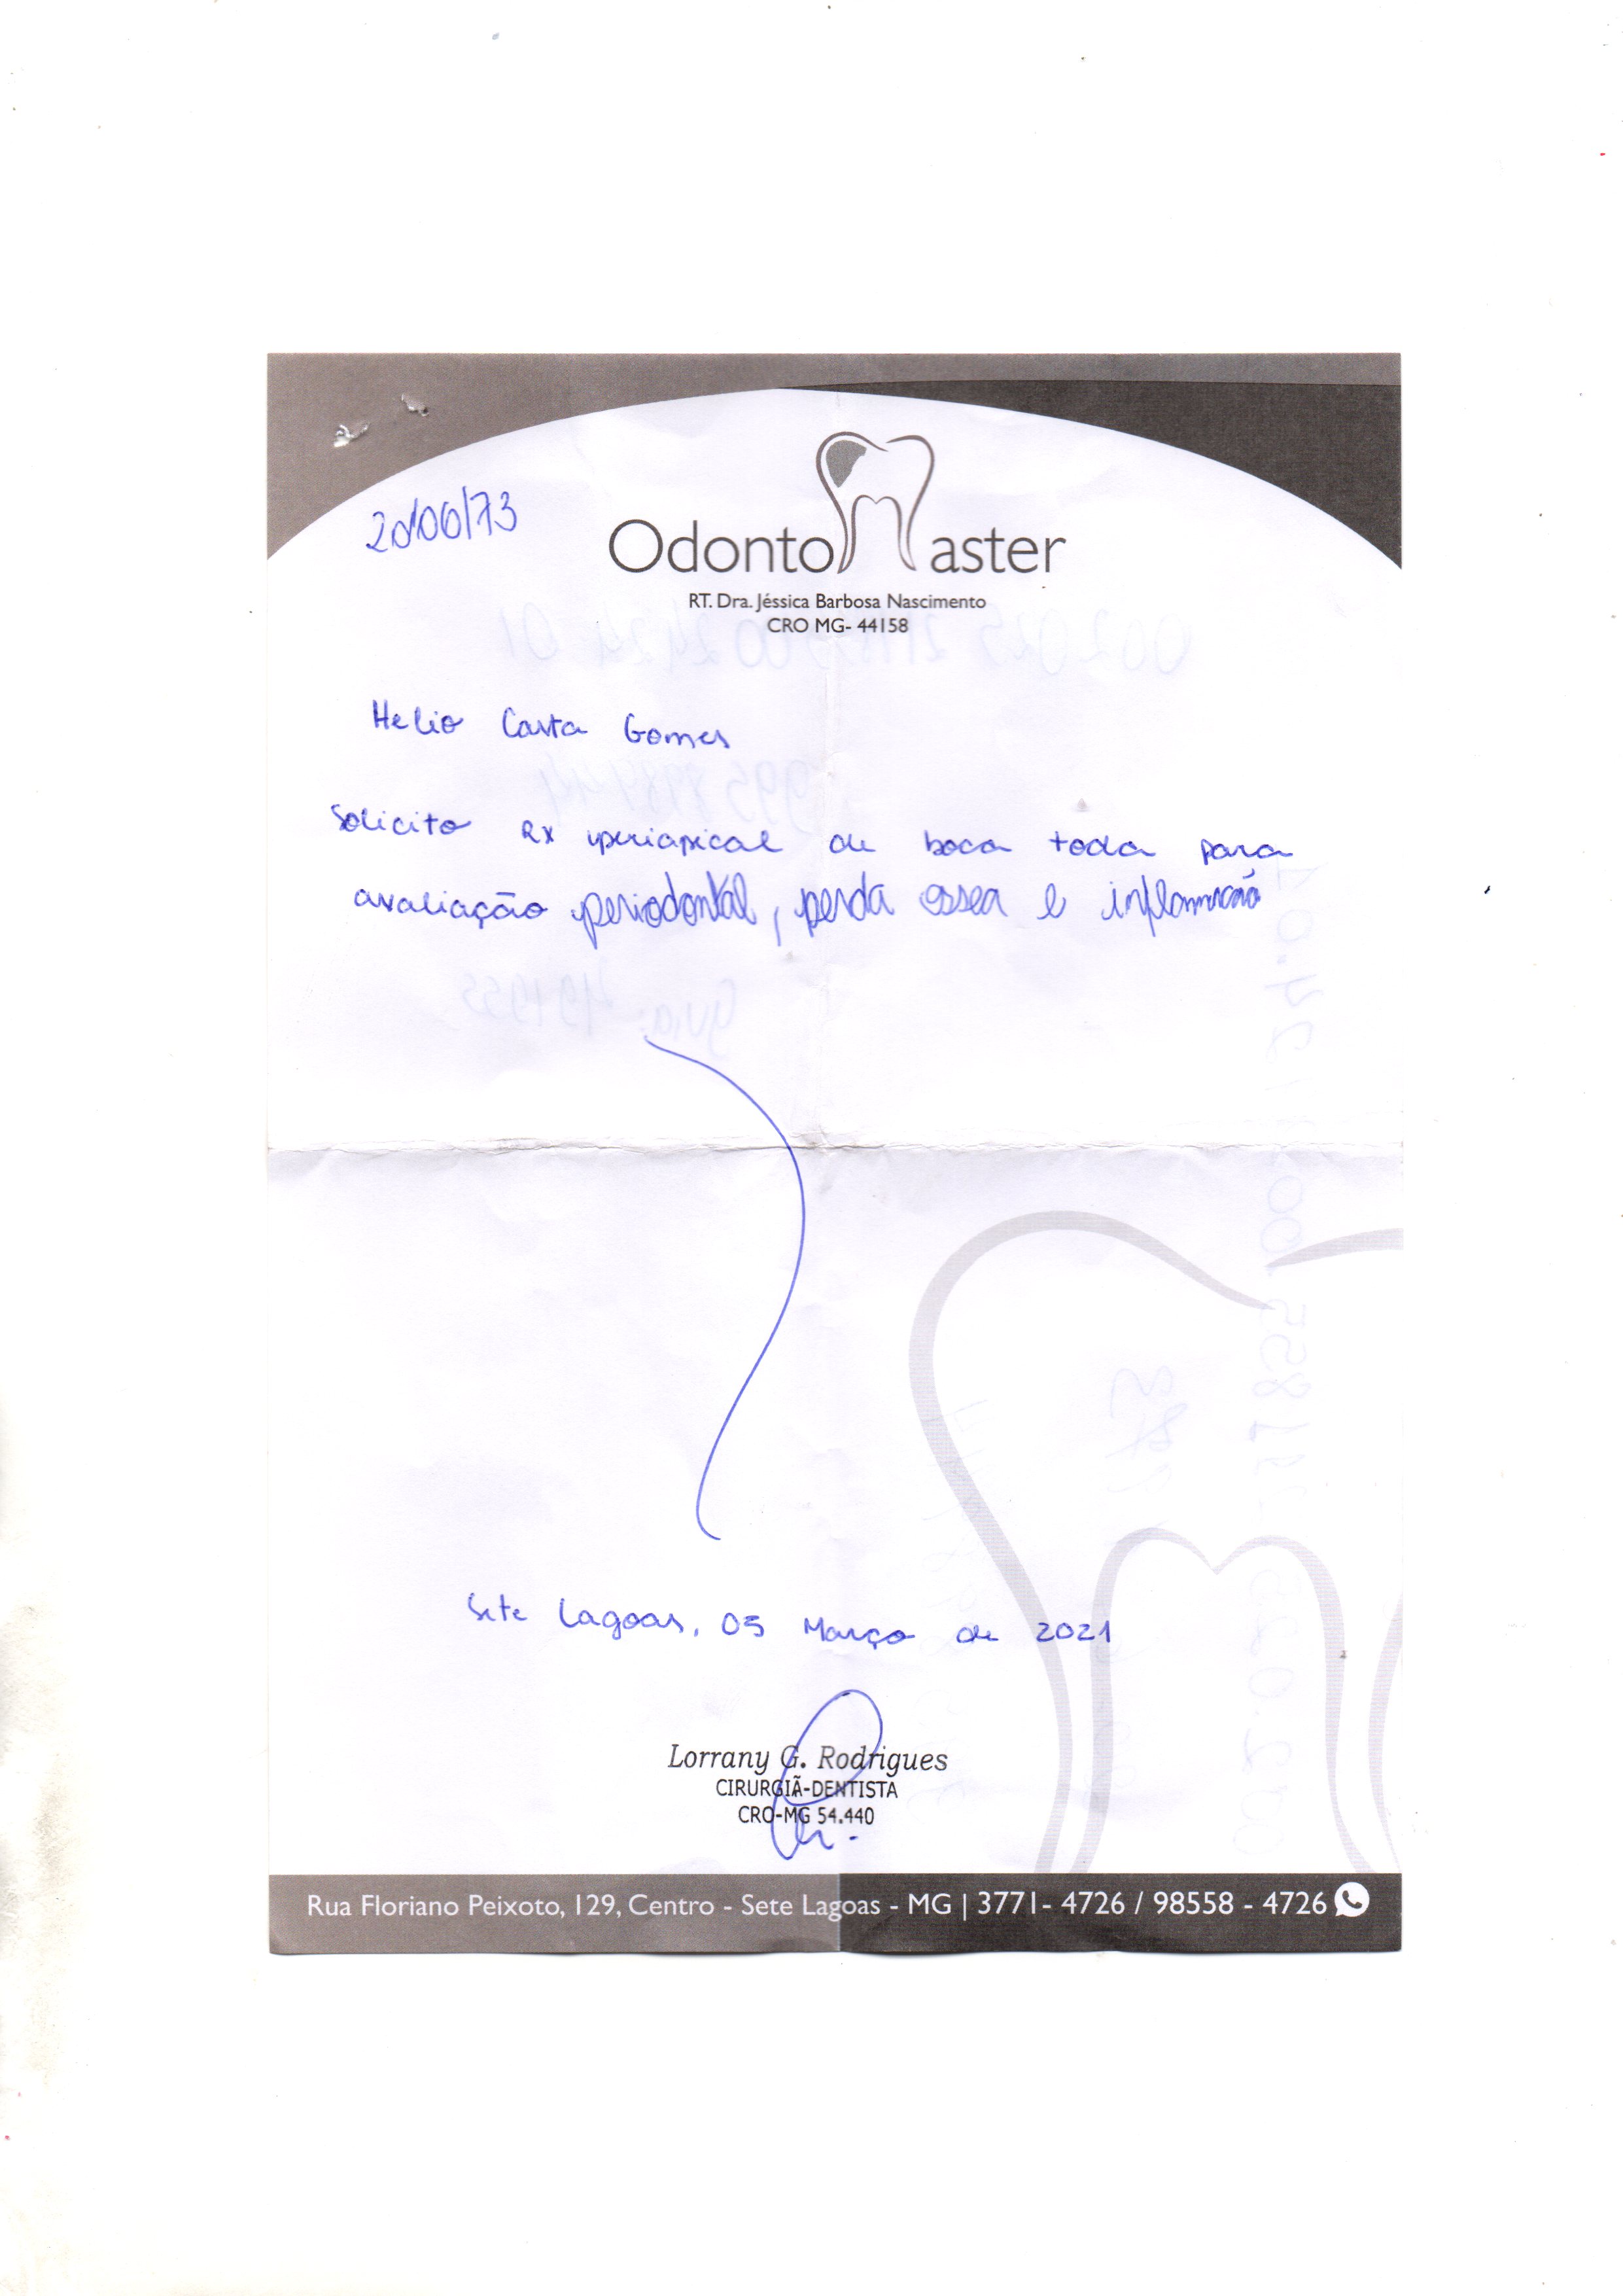 20/06/73
OdontoMaster
RT. Dra. Jéssica Barbosa Nascimento
CRO MG- 44158
Helio Costa Gomes
Solicito RX periapical de boca toda para
avaliação periodontal, perda ossea e inflamação
Sete Lagoas, 05 Março de 2021
Lorrany G. Rodrigues
CIRURGIÃ-DENTISTA
CRO-MG 54.440
Rua Floriano Peixoto, 129, Centro - Sete Lagoas - MG | 3771- 4726 / 98558 - 4726